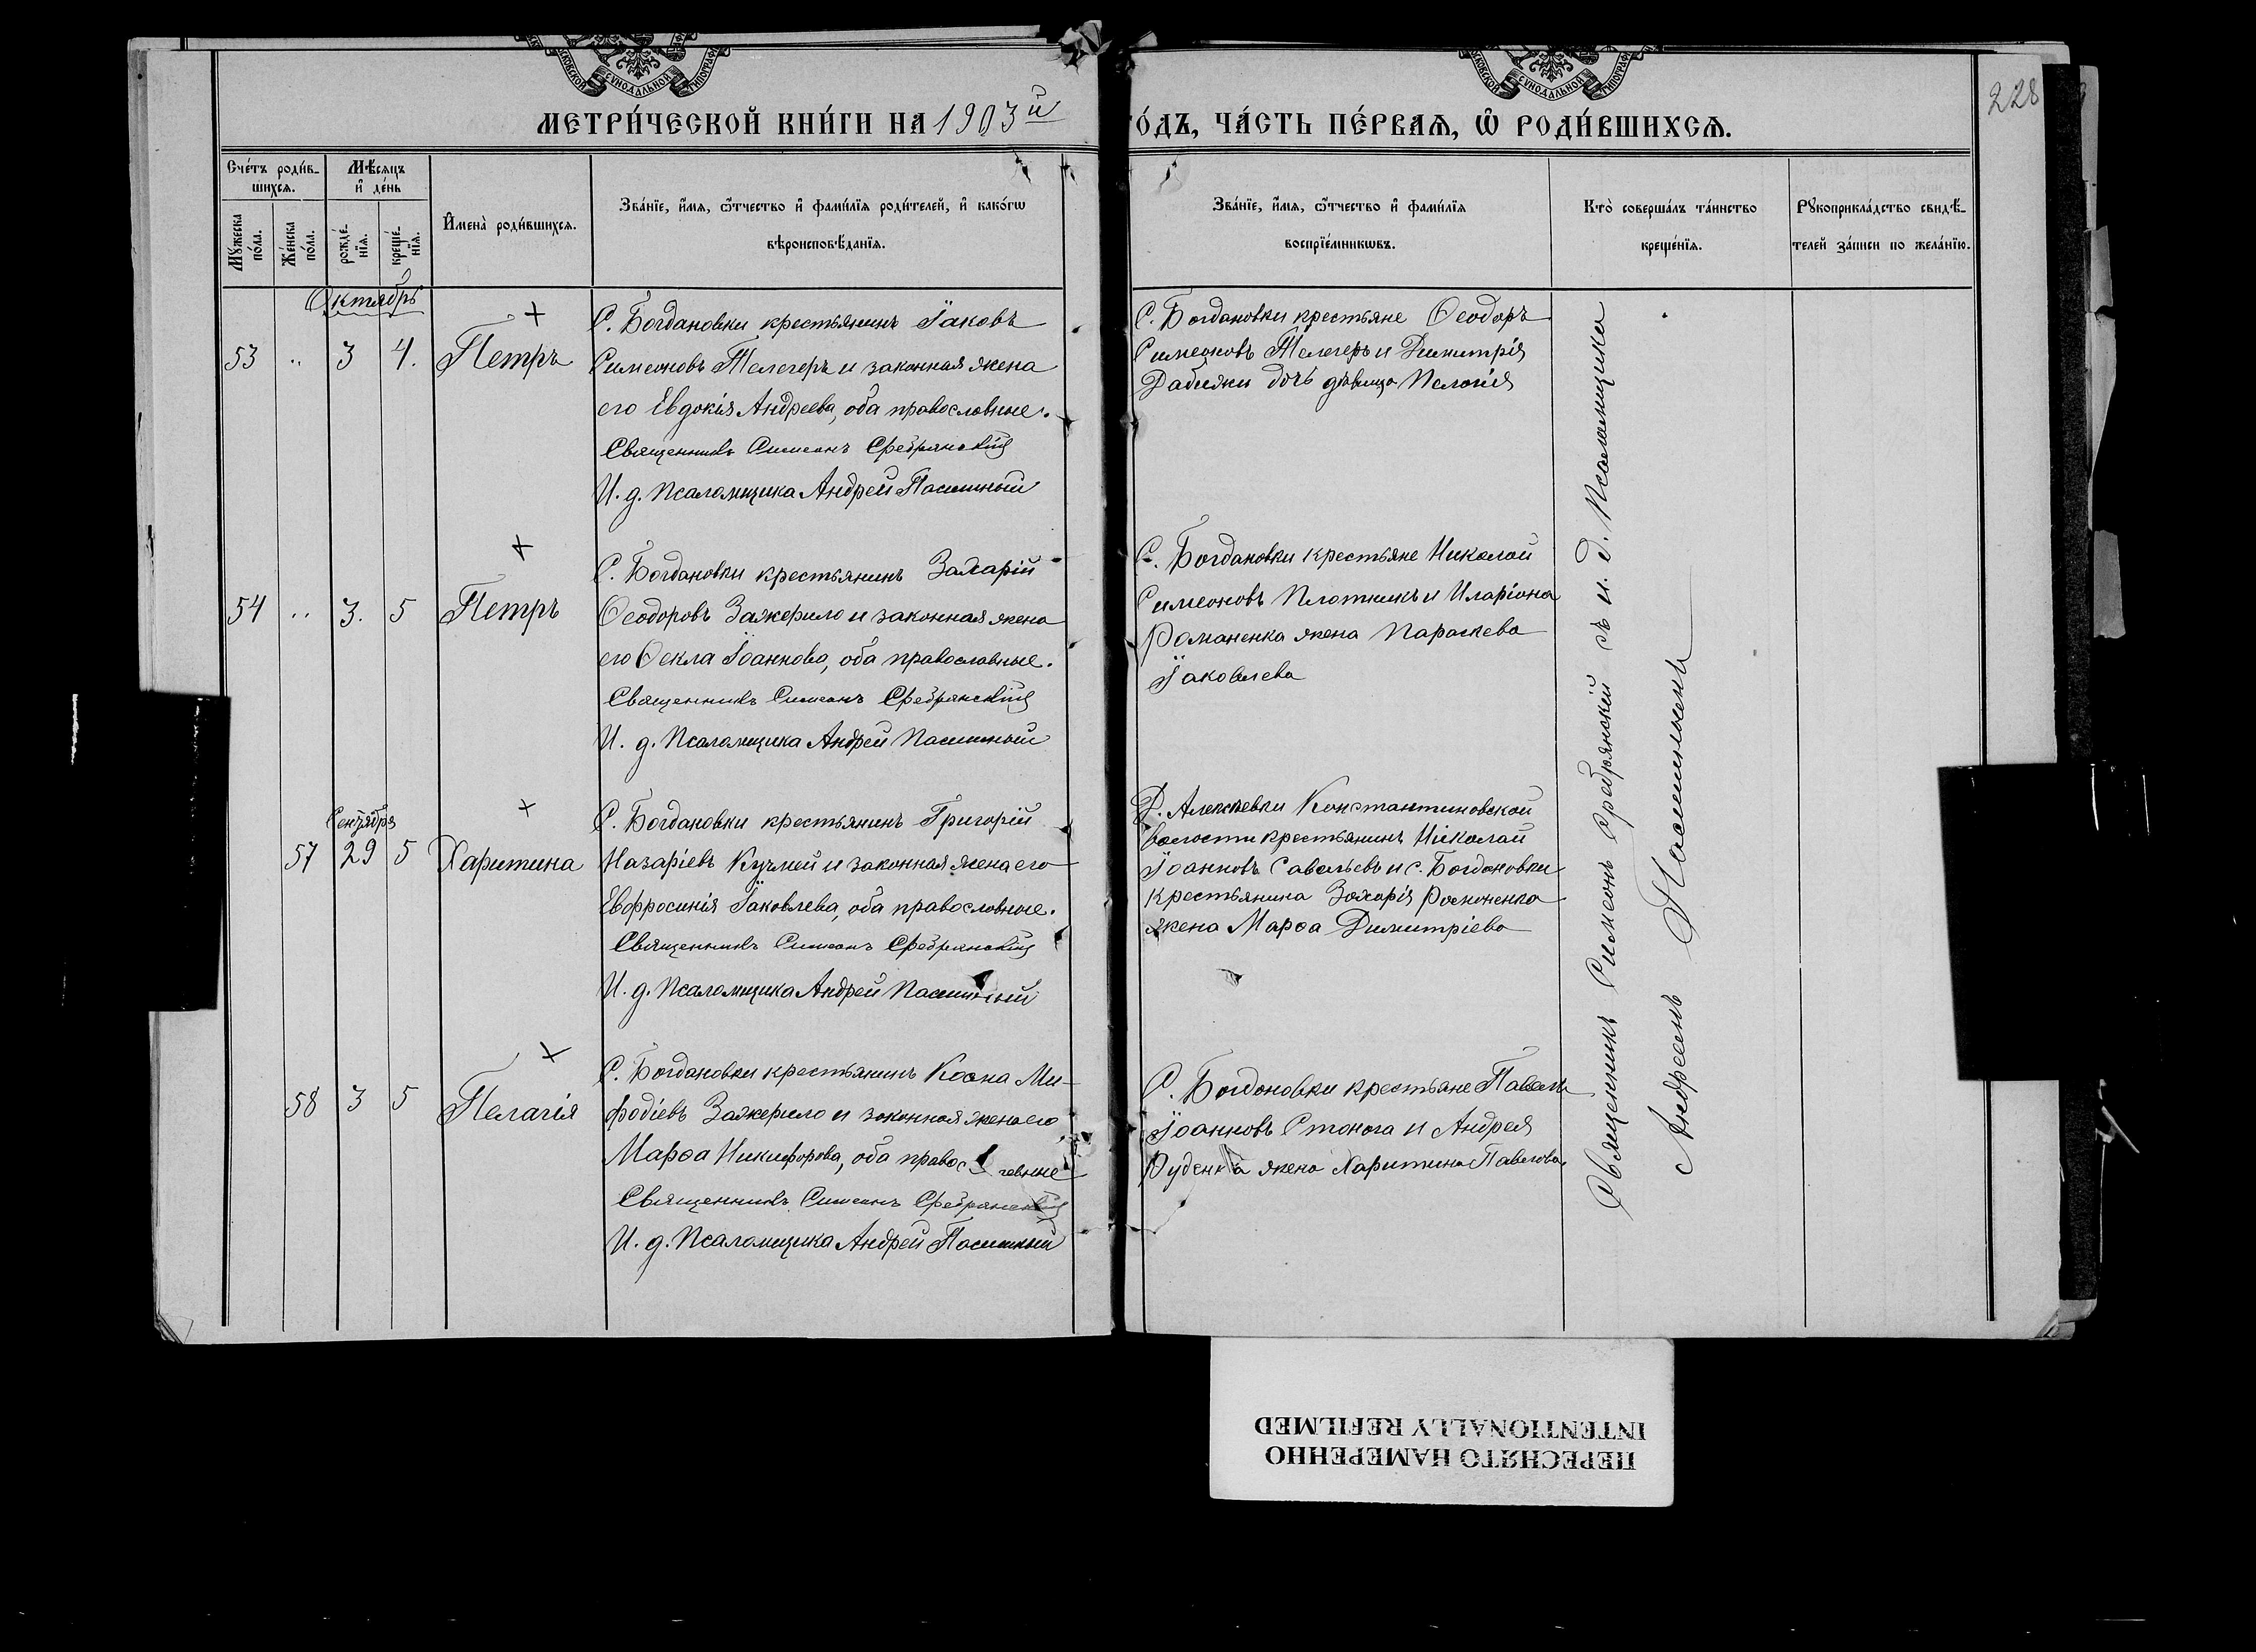 МОСКОВСКОЙ СѴНОДАЛЬНОЙ ТИПОГРАФІ
МОСКОВСКОЙ СѴНОДАЛЬНОЙ ТИПОГРАФІ
228
МЕТРИ́ЧЕСКОЙ КНИ́ГИ НА 1903й
ГО́ДЪ, ЧА́СТЬ ПЕ́РВАѦ, Ѡ҆ РОДИ́ВШИХСѦ.
Сче́тъ роди́в-
шихсѧ.
Мѣ́сѧцъ
и҆ де́нь
Мꙋ́жеска
по́ла.
Же́нска
по́ла.
рожде́-
нїѧ.
креще́-
нїѧ.
И҆мена̀ роди́вшихсѧ.
Зва́нїе, и҆́мѧ, ѻ҆́тчество и҆ фами́лїѧ роди́телей, и҆ како́гѡ
вѣроисповѣ́данїѧ.
Зва́нїе, и҆́мѧ, ѻ҆́тчество и҆ фами́лїѧ
воспрїе́мникѡвъ.
Кто̀ соверша́лъ та́инство
креще́нїѧ.
Рꙋкоприкла́дство свидѣ́-
телей за́писи по жела́нїю.
Октябрь
53 " 3 4. Петръ
С. Богдановки крестьянинъ Іаковъ
Симеоновъ Телегеръ и законная жена
его Евдокія Андреева, оба православные.
Священникъ Симеонъ Сребрянскій
И. д. Псаломщика Андрей Пасишный
С. Богдановки крестьяне Ѳеодоръ
Симеоновъ Телегеръ и Димитрія
Дабижи дочь дѣвица Пелагія
54 " 3. 5 Петръ
С. Богдановки крестьянинъ Захарій
Ѳеодоровъ Зажерило и законная жена
его Ѳекла Іоаннова, оба православные.
Священникъ Симеонъ Сребрянскій
И. д. Псаломщика Андрей Пасишный
С. Богдановки крестьяне Николай
Симеоновъ Плотникъ и Иларіона
Романенка жена Параскева
Іаковлева
Сентября
57 29 5 Харитина
С. Богдановки крестьянинъ Григорій
Назаріевъ Кучмей и законная жена его
Евфросинія Іаковлева, оба православные.
Священникъ Симеонъ Сребрянскій
И. д. Псаломщика Андрей Пасишный
Д. Алексѣевки Константиновской
волости крестьянинъ Николай
Іоанновъ Савельевъ и с. Богдановки
крестьянина Захарія
жена Марѳа Димитріева
58 3 5 Пелагія
С. Богдановки крестьянинъ Косма Ми-
ѳодіевъ Зажерило и законная жена его
Марѳа Никифорова, оба православные
Священникъ Симеонъ Сребрянскій
И. д. Псаломщика Андрей Пасишный
С. Богдановки крестьяне Павелъ
Іоанновъ Стонога и Андрея
Руденка жена Харитина Павлова
Священникъ Симеонъ Сребрянскій съ и. д. Псаломщика
Андреемъ Пасишнымъ
ПЕРЕСНЯТО НАМЕРЕННО
INTENTIONALLY REFILMED